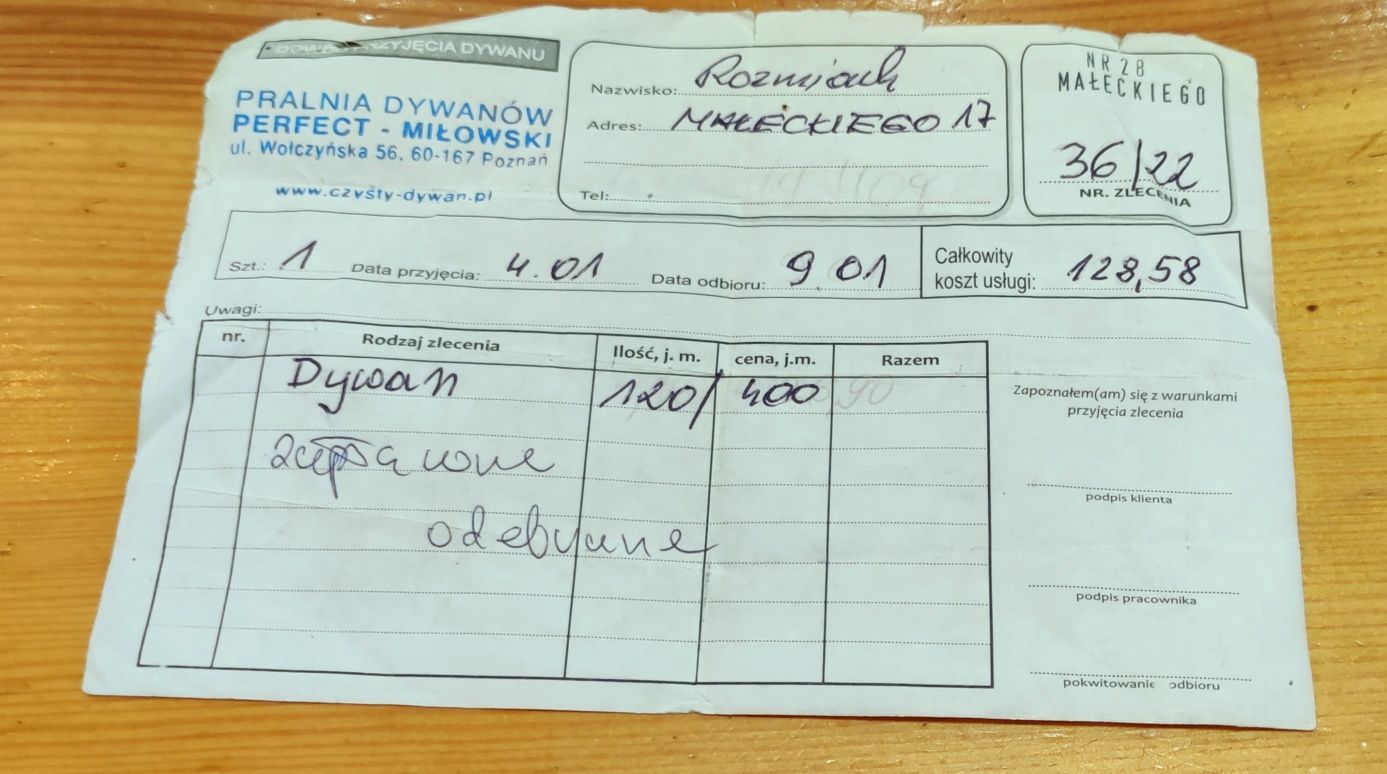 DOWÓD PRZYJĘCIA DYWANU
PRALNIA DYWANÓW
PERFECT - MIŁOWSKI
ul. Wołczyńska 56, 60-167 Poznań
www.czysty-dywan.pl
Nazwisko: Rozmiach
Adres: MAŁECKIEGO 17
Tel:
NR 28
MAŁECKIEGO
36/22
NR. ZLECENIA
Szt.: 1 Data przyjęcia: 4.01 Data odbioru: 9.01
Całkowity
koszt usługi: 128,58
Uwagi:
nr. Rodzaj zlecenia Ilość, j. m. cena, j.m. Razem
Dywan 120/400
odebrane
Zapoznałem(am) się z warunkami
przyjęcia zlecenia
podpis klienta
podpis pracownika
pokwitowanie odbioru